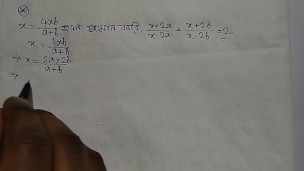 x = 4ab/a+b হলে প্রমাণ করি, x+2a/x-2a + x+2b/x-2b = 2
x = 4ab/a+b
⇒ x = 2a×2b/a+b
⇒